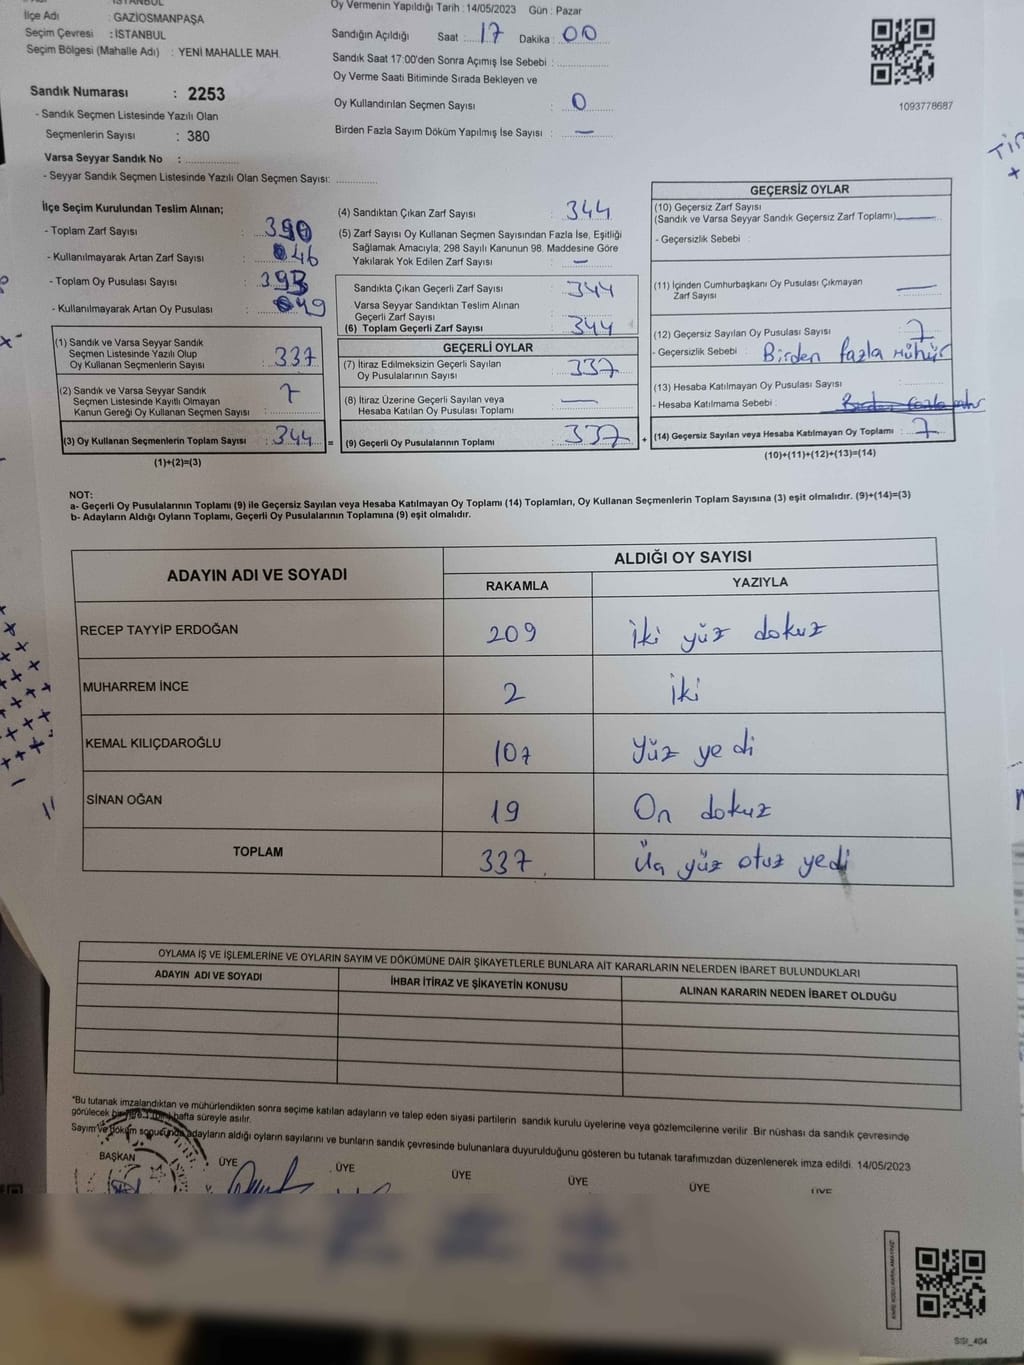 İSTANBUL
İlçe Adı : GAZİOSMANPAŞA
Seçim Çevresi : İSTANBUL
Seçim Bölgesi (Mahalle Adı) : YENİ MAHALLE MAH.
Oy Vermenin Yapıldığı Tarih : 14/05/2023 Gün : Pazar
Sandığın Açıldığı Saat : 17 Dakika : 00
Sandık Saat 17:00'den Sonra Açımış İse Sebebi :
Oy Verme Saati Bitiminde Sırada Bekleyen ve
Oy Kullandırılan Seçmen Sayısı : 0
Birden Fazla Sayım Döküm Yapılmış İse Sayısı : —
1093778687
Sandık Numarası : 2253
- Sandık Seçmen Listesinde Yazılı Olan
Seçmenlerin Sayısı : 380
Varsa Seyyar Sandık No :
- Seyyar Sandık Seçmen Listesinde Yazılı Olan Seçmen Sayısı:
İlçe Seçim Kurulundan Teslim Alınan;
- Toplam Zarf Sayısı : 390
- Kullanılmayarak Artan Zarf Sayısı : 46
- Toplam Oy Pusulası Sayısı : 393
- Kullanılmayarak Artan Oy Pusulası : 49
(1) Sandık ve Varsa Seyyar Sandık
Seçmen Listesinde Yazılı Olup
Oy Kullanan Seçmenlerin Sayısı : 337
(2) Sandık ve Varsa Seyyar Sandık
Seçmen Listesinde Kayıtlı Olmayan
Kanun Gereği Oy Kullanan Seçmen Sayısı : 7
(3) Oy Kullanan Seçmenlerin Toplam Sayısı : 344 =
(1)+(2)=(3)
(4) Sandıktan Çıkan Zarf Sayısı : 344
(5) Zarf Sayısı Oy Kullanan Seçmen Sayısından Fazla İse, Eşitliği
Sağlamak Amacıyla; 298 Sayılı Kanunun 98. Maddesine Göre
Yakılarak Yok Edilen Zarf Sayısı : —
Sandıkta Çıkan Geçerli Zarf Sayısı : 344
Varsa Seyyar Sandıktan Teslim Alınan
Geçerli Zarf Sayısı
(6) Toplam Geçerli Zarf Sayısı : 344
GEÇERLİ OYLAR
(7) İtiraz Edilmeksizin Geçerli Sayılan
Oy Pusulalarının Sayısı : 337
(8) İtiraz Üzerine Geçerli Sayılan veya
Hesaba Katılan Oy Pusulası Toplamı : —
(9) Geçerli Oy Pusulalarının Toplamı : 337 +
GEÇERSİZ OYLAR
(10) Geçersiz Zarf Sayısı
(Sandık ve Varsa Seyyar Sandık Geçersiz Zarf Toplamı) —
- Geçersizlik Sebebi :
(11) İçinden Cumhurbaşkanı Oy Pusulası Çıkmayan
Zarf Sayısı —
(12) Geçersiz Sayılan Oy Pusulası Sayısı : 7
- Geçersizlik Sebebi : Birden fazla mühür
(13) Hesaba Katılmayan Oy Pusulası Sayısı :
- Hesaba Katılmama Sebebi :
(14) Geçersiz Sayılan veya Hesaba Katılmayan Oy Toplamı : 7
(10)+(11)+(12)+(13)=(14)
NOT:
a- Geçerli Oy Pusulalarının Toplamı (9) ile Geçersiz Sayılan veya Hesaba Katılmayan Oy Toplamı (14) Toplamları, Oy Kullanan Seçmenlerin Toplam Sayısına (3) eşit olmalıdır. (9)+(14)=(3)
b- Adayların Aldığı Oyların Toplamı, Geçerli Oy Pusulalarının Toplamına (9) eşit olmalıdır.
ADAYIN ADI VE SOYADI
ALDIĞI OY SAYISI
RAKAMLA YAZIYLA
RECEP TAYYİP ERDOĞAN 209 İki yüz dokuz
MUHARREM İNCE 2 İki
KEMAL KILIÇDAROĞLU 107 Yüz yedi
SİNAN OĞAN 19 On dokuz
TOPLAM 337 Üç yüz otuz yedi
OYLAMA İŞ VE İŞLEMLERİNE VE OYLARIN SAYIM VE DÖKÜMÜNE DAİR ŞİKAYETLERLE BUNLARA AİT KARARLARIN NELERDEN İBARET BULUNDUKLARI
ADAYIN ADI VE SOYADI İHBAR İTİRAZ VE ŞİKAYETİN KONUSU ALINAN KARARIN NEDEN İBARET OLDUĞU
*Bu tutanak imzalandıktan ve mühürlendikten sonra seçime katılan adayların ve talep eden siyasi partilerin sandık kurulu üyelerine veya gözlemcilerine verilir .Bir nüshası da sandık çevresinde
görülecek bir yere 1 (bir) hafta süreyle asılır.
Sayım ve döküm sonucunda adayların aldığı oyların sayılarını ve bunların sandık çevresinde bulunanlara duyurulduğunu gösteren bu tutanak tarafımızdan düzenlenerek imza edildi. 14/05/2023
BAŞKAN ÜYE ÜYE ÜYE ÜYE ÜYE ÜYE
SISI_404